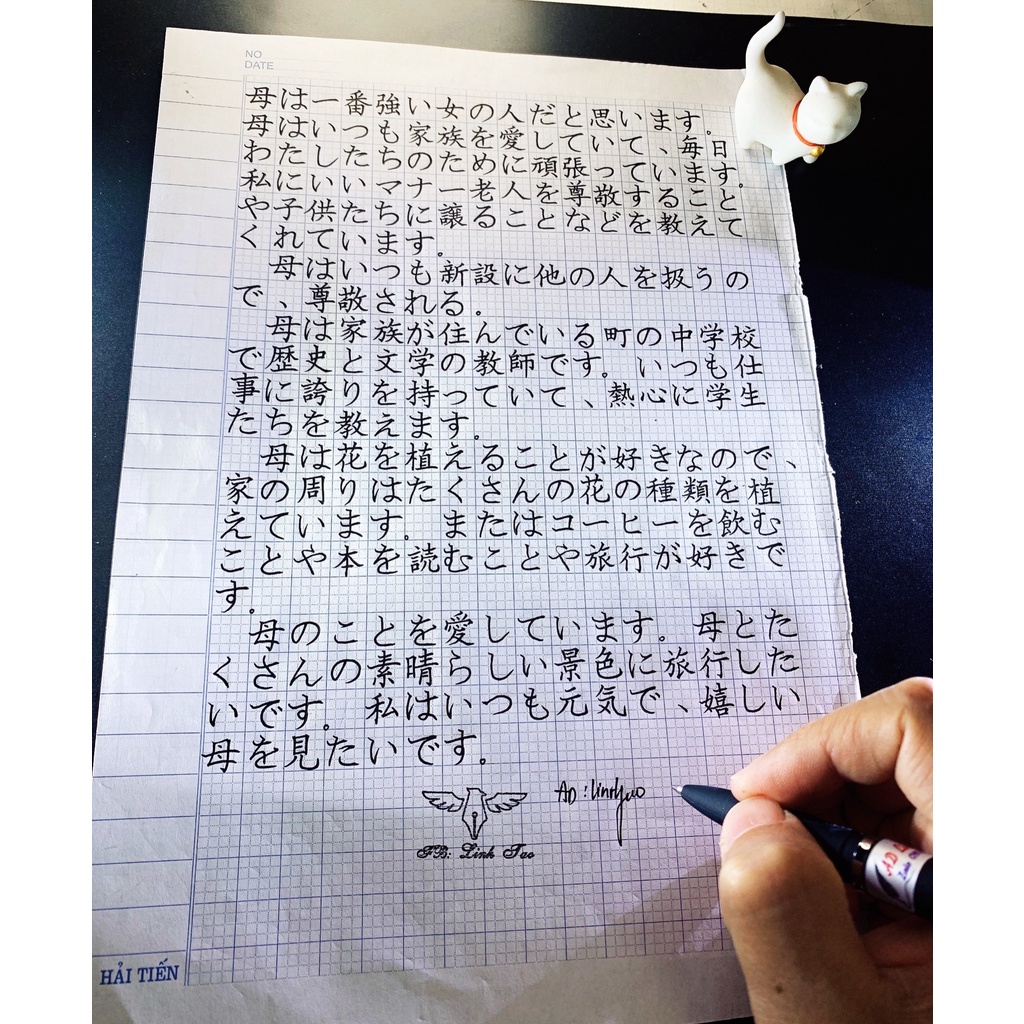 NO
DATE
母は一番強い女の人だと思います。
母はいつも家族を愛していて、毎日
わたしたちのために頑張っています。
私にいいマナー老人を尊敬すること
や子供たちに譲ることなどを教えて
くれています。
母はいつも新設に他の人を扱うの
で、尊敬される。
母は家族が住んでいる町の中学校
で歴史と文学の教師です。いつも仕
事に誇りを持っていて、熱心に学生
たちを教えます。
母は花を植えることが好きなので、
家の周りはたくさんの花の種類を植
えています。またはコーヒーを飲む
ことや本を読むことや旅行が好きで
す。
母のことを愛しています。母とた
くさんの素晴らしい景色に旅行した
いです。私はいつも元気で、嬉しい
母を見たいです。
FB: Linh Tao
HẢI TIẾN